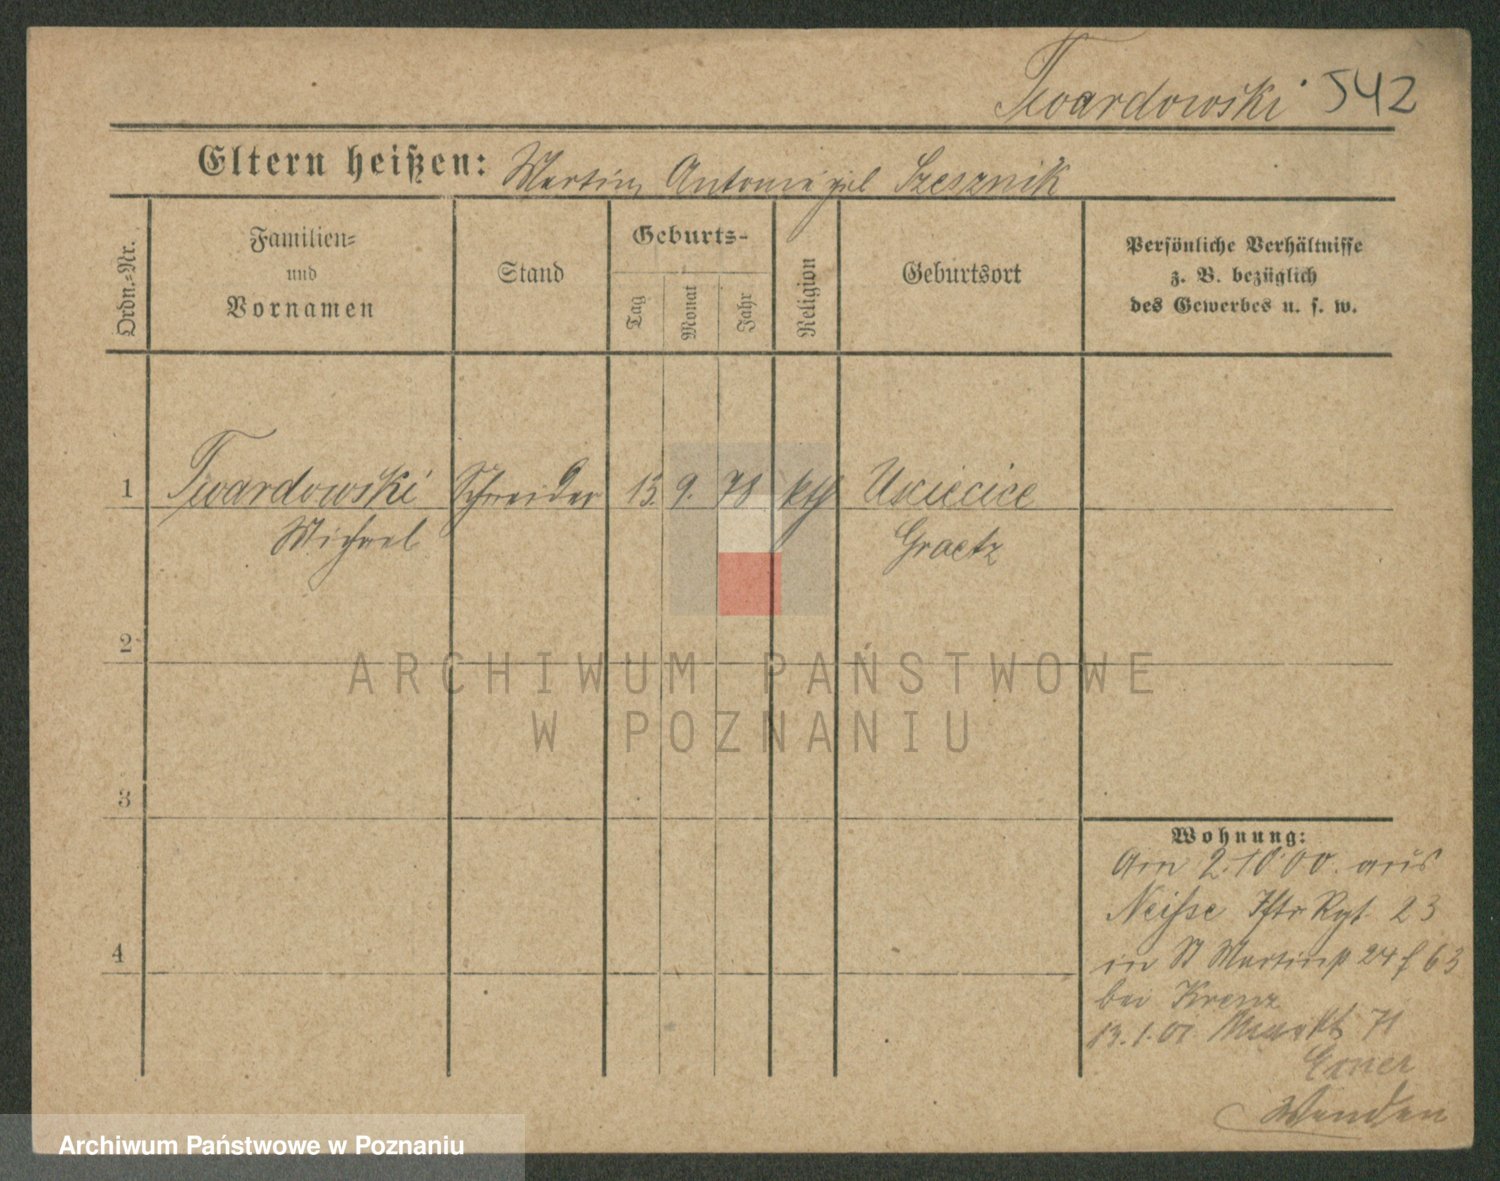 Twardowski 542
Eltern heißen: Martin, Antonie geb. Szesznik
Ordn.-Nr.
Familien-
und
Vornamen
Stand
Geburts-
Tag
Monat
Jahr
Religion
Geburtsort
Persönliche Verhältnisse
z. B. bezüglich
des Gewerbes u. s. w.
1 Twardowski Schneider 13. 9. 78 kth Usciecice
Michael Graetz
2
3
4
Wohnung:
Am 2.10.00. aus
Neisse Iftr Rgt 23
in St Martin 24 63
bei Krenz
13.1.01. Markt 71
Wenden
ARCHIWUM PAŃSTWOWE
W POZNANIU
Archiwum Państwowe w Poznaniu